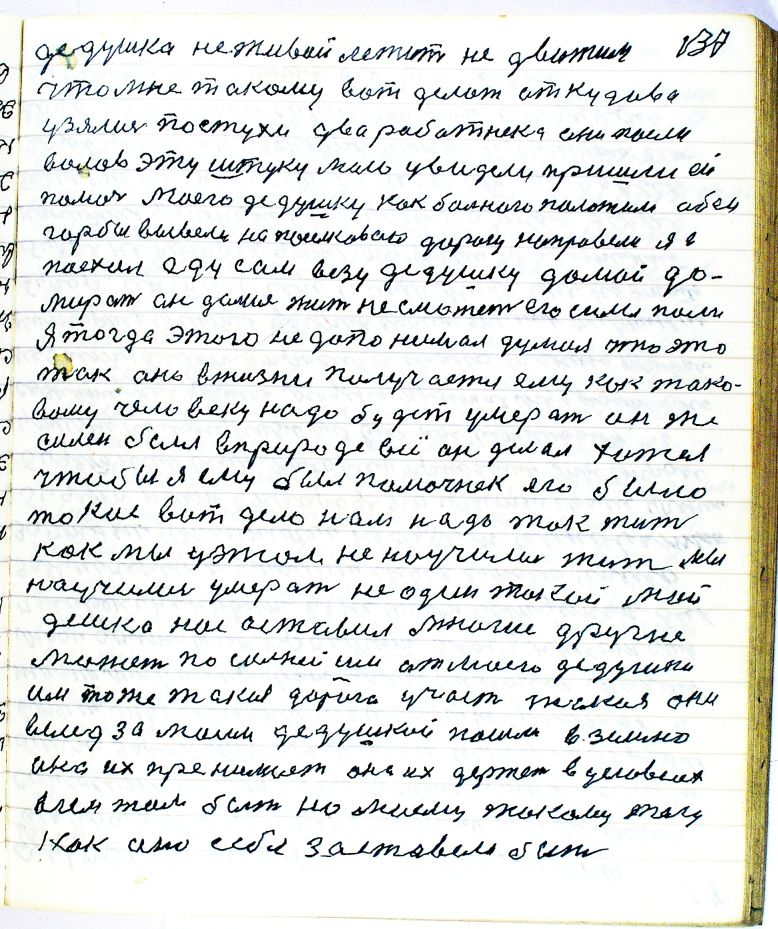 дедушка неживой лежит не движим 137
что мне такому вот делат откудова
узялис постухи два работнека они посли
волов эту штуку мало увидели пришли ей
помоч моего дедушку как болного положили
горбы вывели на дорогу направели я и
поехал еду сам везу дедушку домой до-
мират он дома жит не сможет его силы
я тогда этого не допонимал думал что это
так оно в жизни получается ему как тако-
вому человеку надо будет умерат он же
силен был в природе всё он делал хотел
чтобы я ему был помочнек его было
токое вот дело нам надо так жит
как мы у этом не научилис жит мы
научилис умерат не один такой мой
дешка нас оставил многие другие
может по силней им от моего дедушки
им тоже такая дорога участ такая они
вслед за моим дедушкой пошли в землю
она их пренимает она их держет в условиях
всем там быт по моему такому телу
как оно себя заставело быт